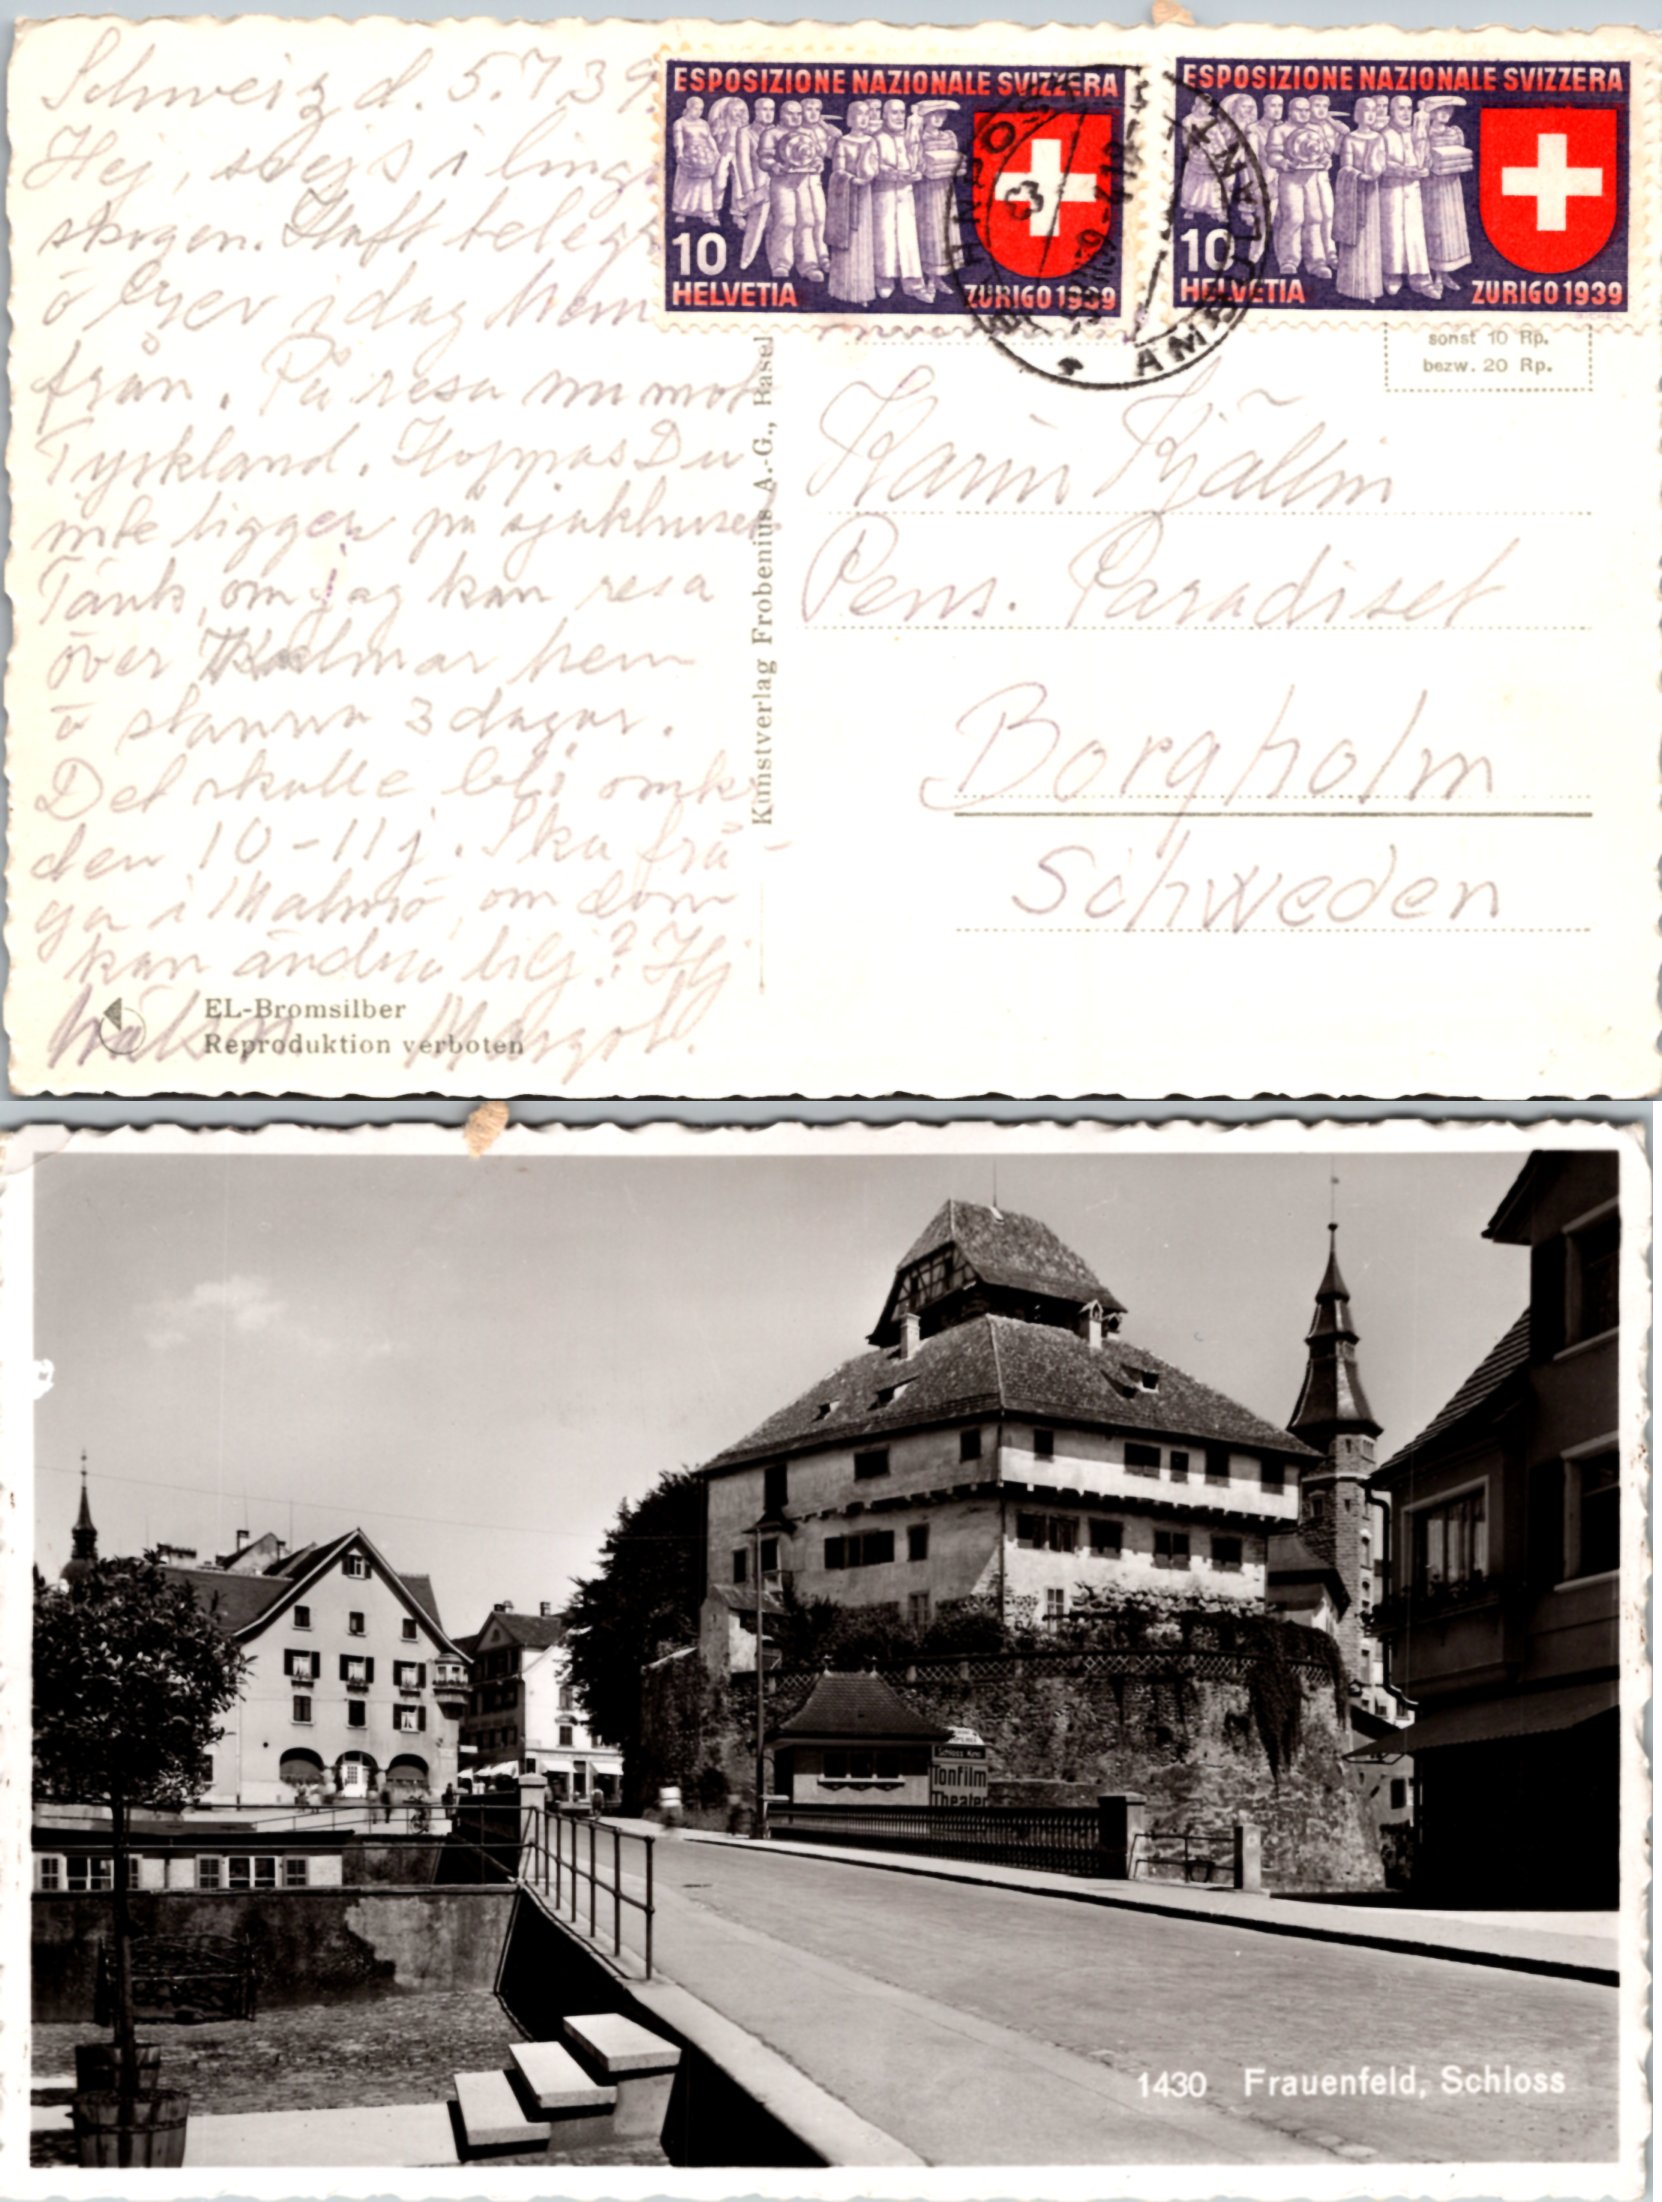 Schweiz d. 5.7.39.
Hej, sväjs i linge
skogen. Haft telegr
o brev i dag hem
från. På resa nu mot
Tyskland. Hoppas Du
inte ligger på sjukhuset
Tänk, om jag kan resa
över Kalmar hem
o stanna 3 dagar.
Det skulle bli omkr
den 10-11 j. Ska frå-
ga i Malmö, om dom
kan ändra bilj? Hj
hälsn Margot.
EL-Bromsilber
Reproduktion verboten
Kunstverlag Frobenius A.-G., Basel
ESPOSIZIONE NAZIONALE SVIZZERA
10
HELVETIA
ZURIGO 1939
ESPOSIZIONE NAZIONALE SVIZZERA
10
HELVETIA
ZURIGO 1939
AMBULANT
sonst 10 Rp.
bezw. 20 Rp.
Karin Kjällin
Pens. Paradiset
Borgholm
Schweden
Schloss Kino
Tonfilm
Theater
1430 Frauenfeld, Schloss